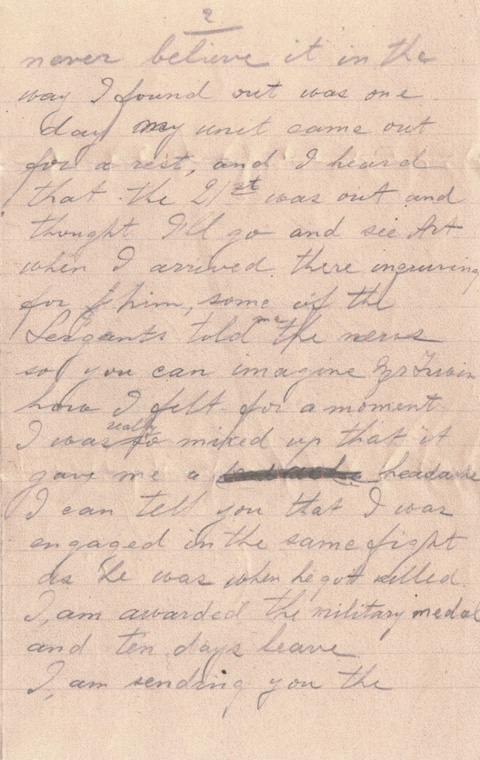 2
never believe it in the
way I found out was one
day my unit came out
for a rest, and I heard
that the 21st was out and
thought I'll go and see Art
when I arrived there inquiring
for him, some of the
Sergants told me the news
so you can imagine Mrs Irwin
how I felt for a moment
I was really so mixed up that it
gave me a headache
I can tell you that I was
engaged in the same fight
as he was when he got killed.
I, am awarded the military medal
and ten days leave
I, am sending you the